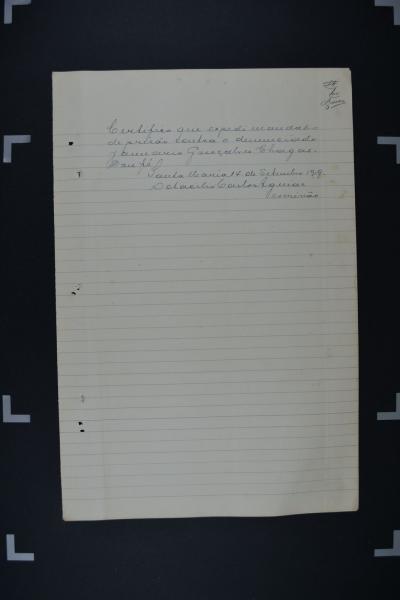 Certifico que expedi mandado
de prisão contra o denunciado
Januario Gonçalves Chagas.
Dou fé.
Santa Maria 14 de Setembro 19
Octacilio Carlos Aguiar
escrivão